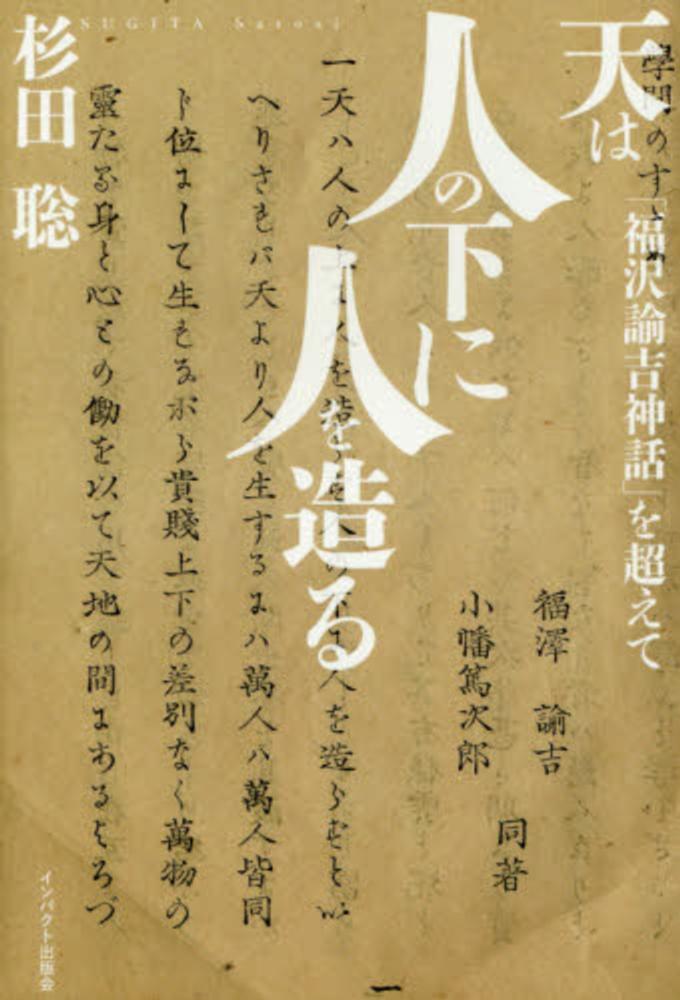 天は
人の下に
人を造る
「福沢諭吉神話」を超えて
SUGITA Satoshi
杉田 聡
學問のすゝめ
福澤 諭吉
小幡篤次郎
同著
一天ハ人の上に人を造らず人の下に人を造らずと以
へりされバ天より人を生ずるにハ萬人ハ萬人皆同
じ位にして生れながら貴賤上下の差別なく萬物の
靈たる身と心との働を以て天地の間にあるよろづ
インパクト出版会